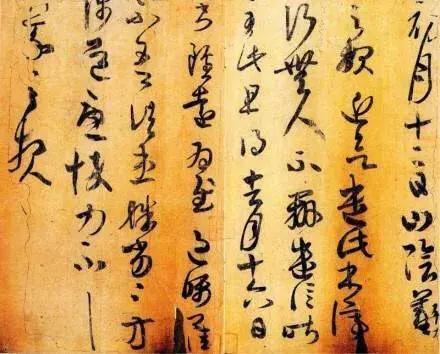 初月十二日山陰羲
之報近欲遣此書停
行無人不辦遣信昨
至此且得去月十六日
書雖遠為慰過囑
不吾諸患殊劣〻方
涉道憂悴力不具
羲之報